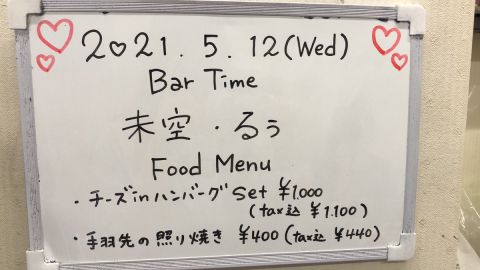 2♡21.5.12(Wed)
Bar Time
未空・るぅ
Food Menu
・チーズinハンバーグset ¥1.000
(tax込 ¥1.100)
・手羽先の照り焼き ¥400(tax込 ¥440)